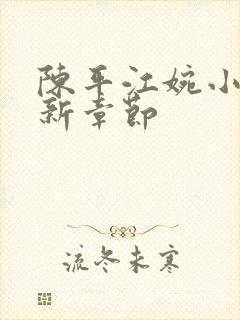 陳平江婉小
新章節
流冬未寒